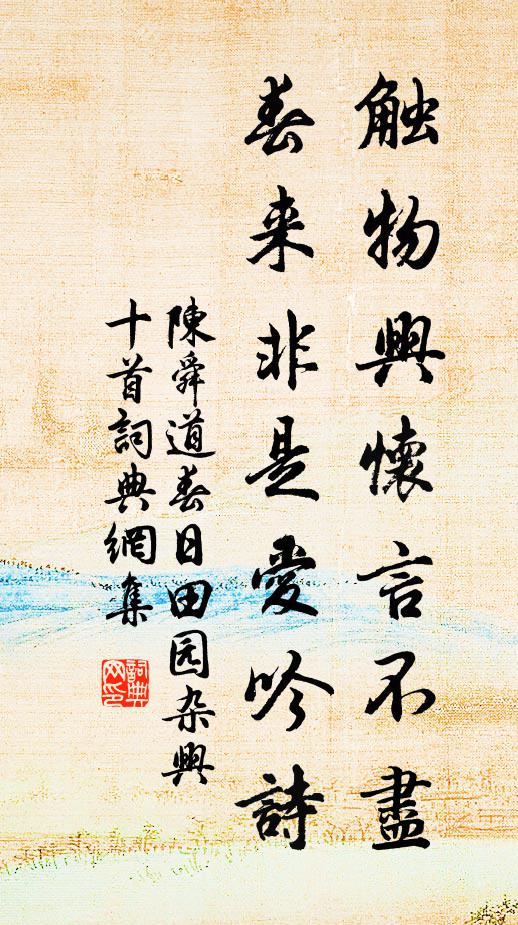 触物興懷言不盡
春来非是愛吟詩
陳舜道春日田园杂興
十首詞典網集
詞典網印